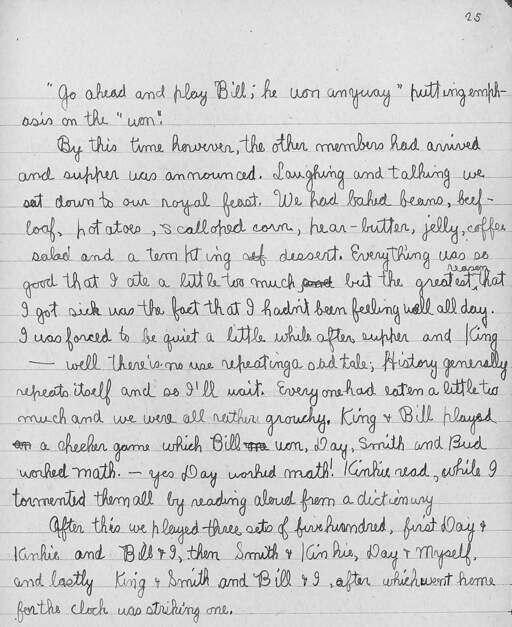 25
"Go ahead and play Bill; he won anyway" putting emph-
asis on the "won".
By this time however, the other members had arrived
and supper was announced. Laughing and talking we
sat down to our royal feast. We had baked beans, beef-
loaf, potatoes, scalloped corn, pear-butter, jelly, coffee
salad and a tempting dessert. Everything was so
good that I ate a little too much but the greatest reason that
I got sick was the fact that I hadn't been feeling well all day.
I was forced to be quiet a little while after supper and King
— well there's no use repeating a sad tale; History generally
repeats itself and so I'll wait. Everyone had eaten a little too
much and we were all rather grouchy. King & Bill played
a checker game which Bill won, Day, Smith and Bud
worked math. — yes Day worked math! Kinkie read, while I
tormented them all by reading aloud from a dictionary
After this we played three sets of five hundred, first Day &
Kinkie and Bill & I, then Smith & Kinkie, Day & Myself.
and lastly King & Smith and Bill & I, after which went home
for the clock was striking one.